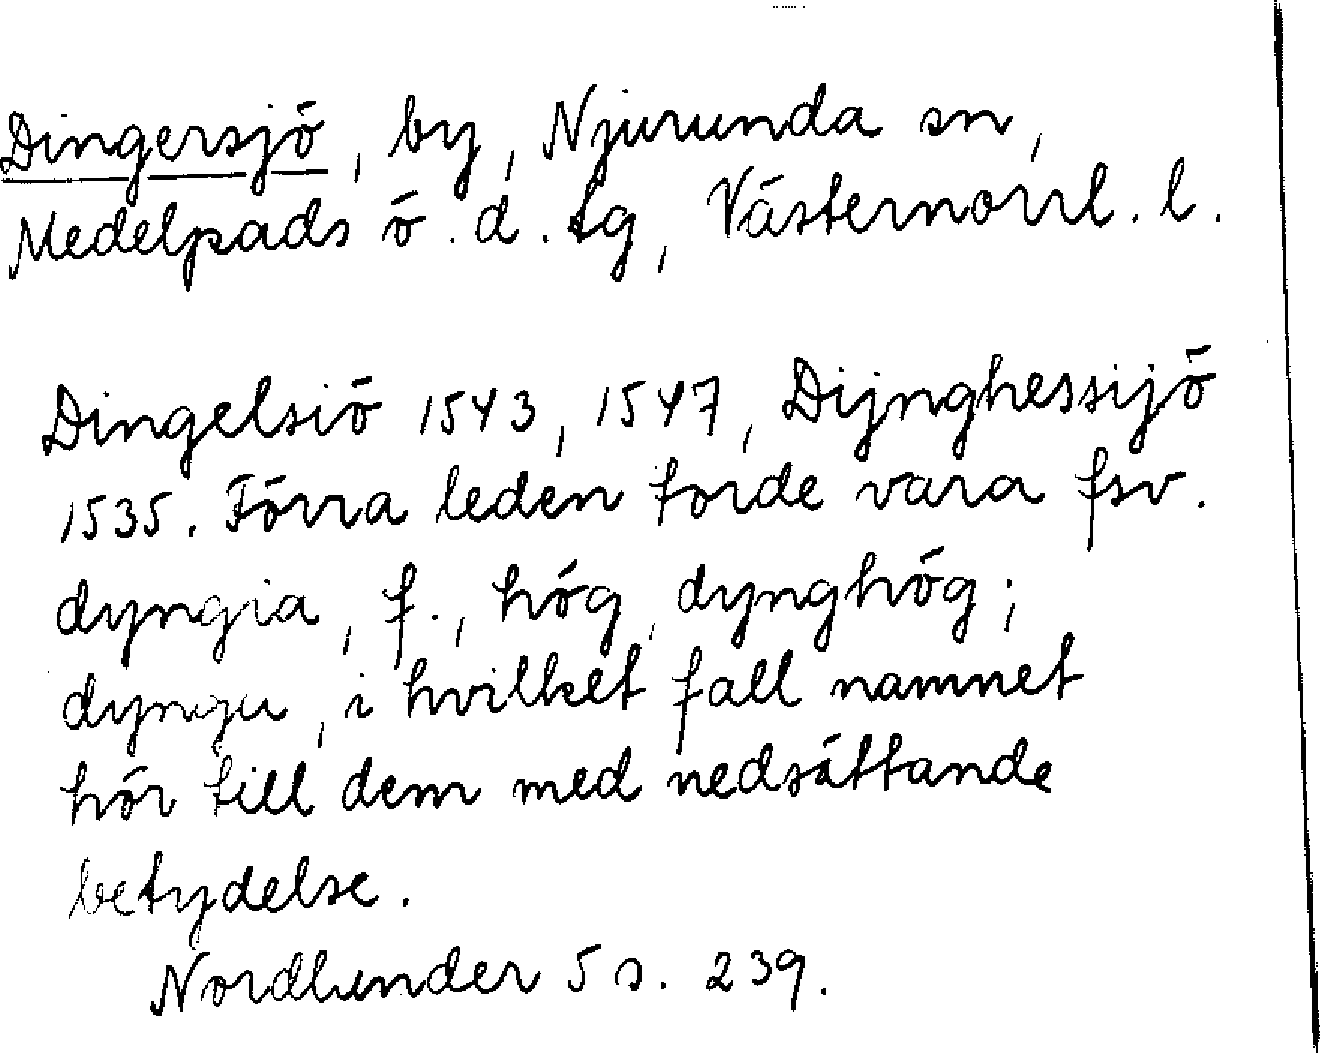 Dingersjö, by, Njurunda sn,
Medelpads ö. d. tg, Västernorrl. l.
Dingelsiö 1543, 1547, Dijnghessijö
1535. Förra leden torde vara fsv.
dyngia, f., hög, dynghög;
dyngu, i hvilket fall namnet
hör till dem med nedsättande
betydelse.
Nordlander 5 s. 239.